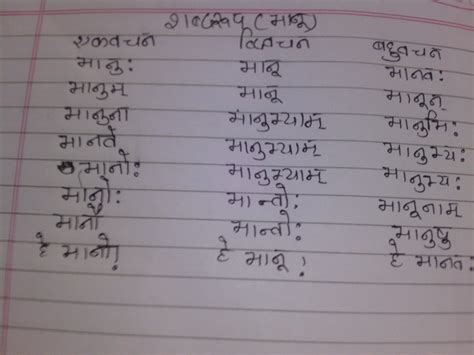 शब्दरूप (भानू)
एकवचन द्विवचन बहुवचन
भानु: भानू भानव:
भानुम् भानू भानून्
भानुना भानुभ्याम् भानुभि:
भानवे भानुभ्याम् भानुभ्य:
भानो: भानुभ्याम् भानुभ्य:
भानो: भान्वो: भानूनाम्
भानौ भान्वो: भानुषु
हे भानो! हे भानू! हे भानव: